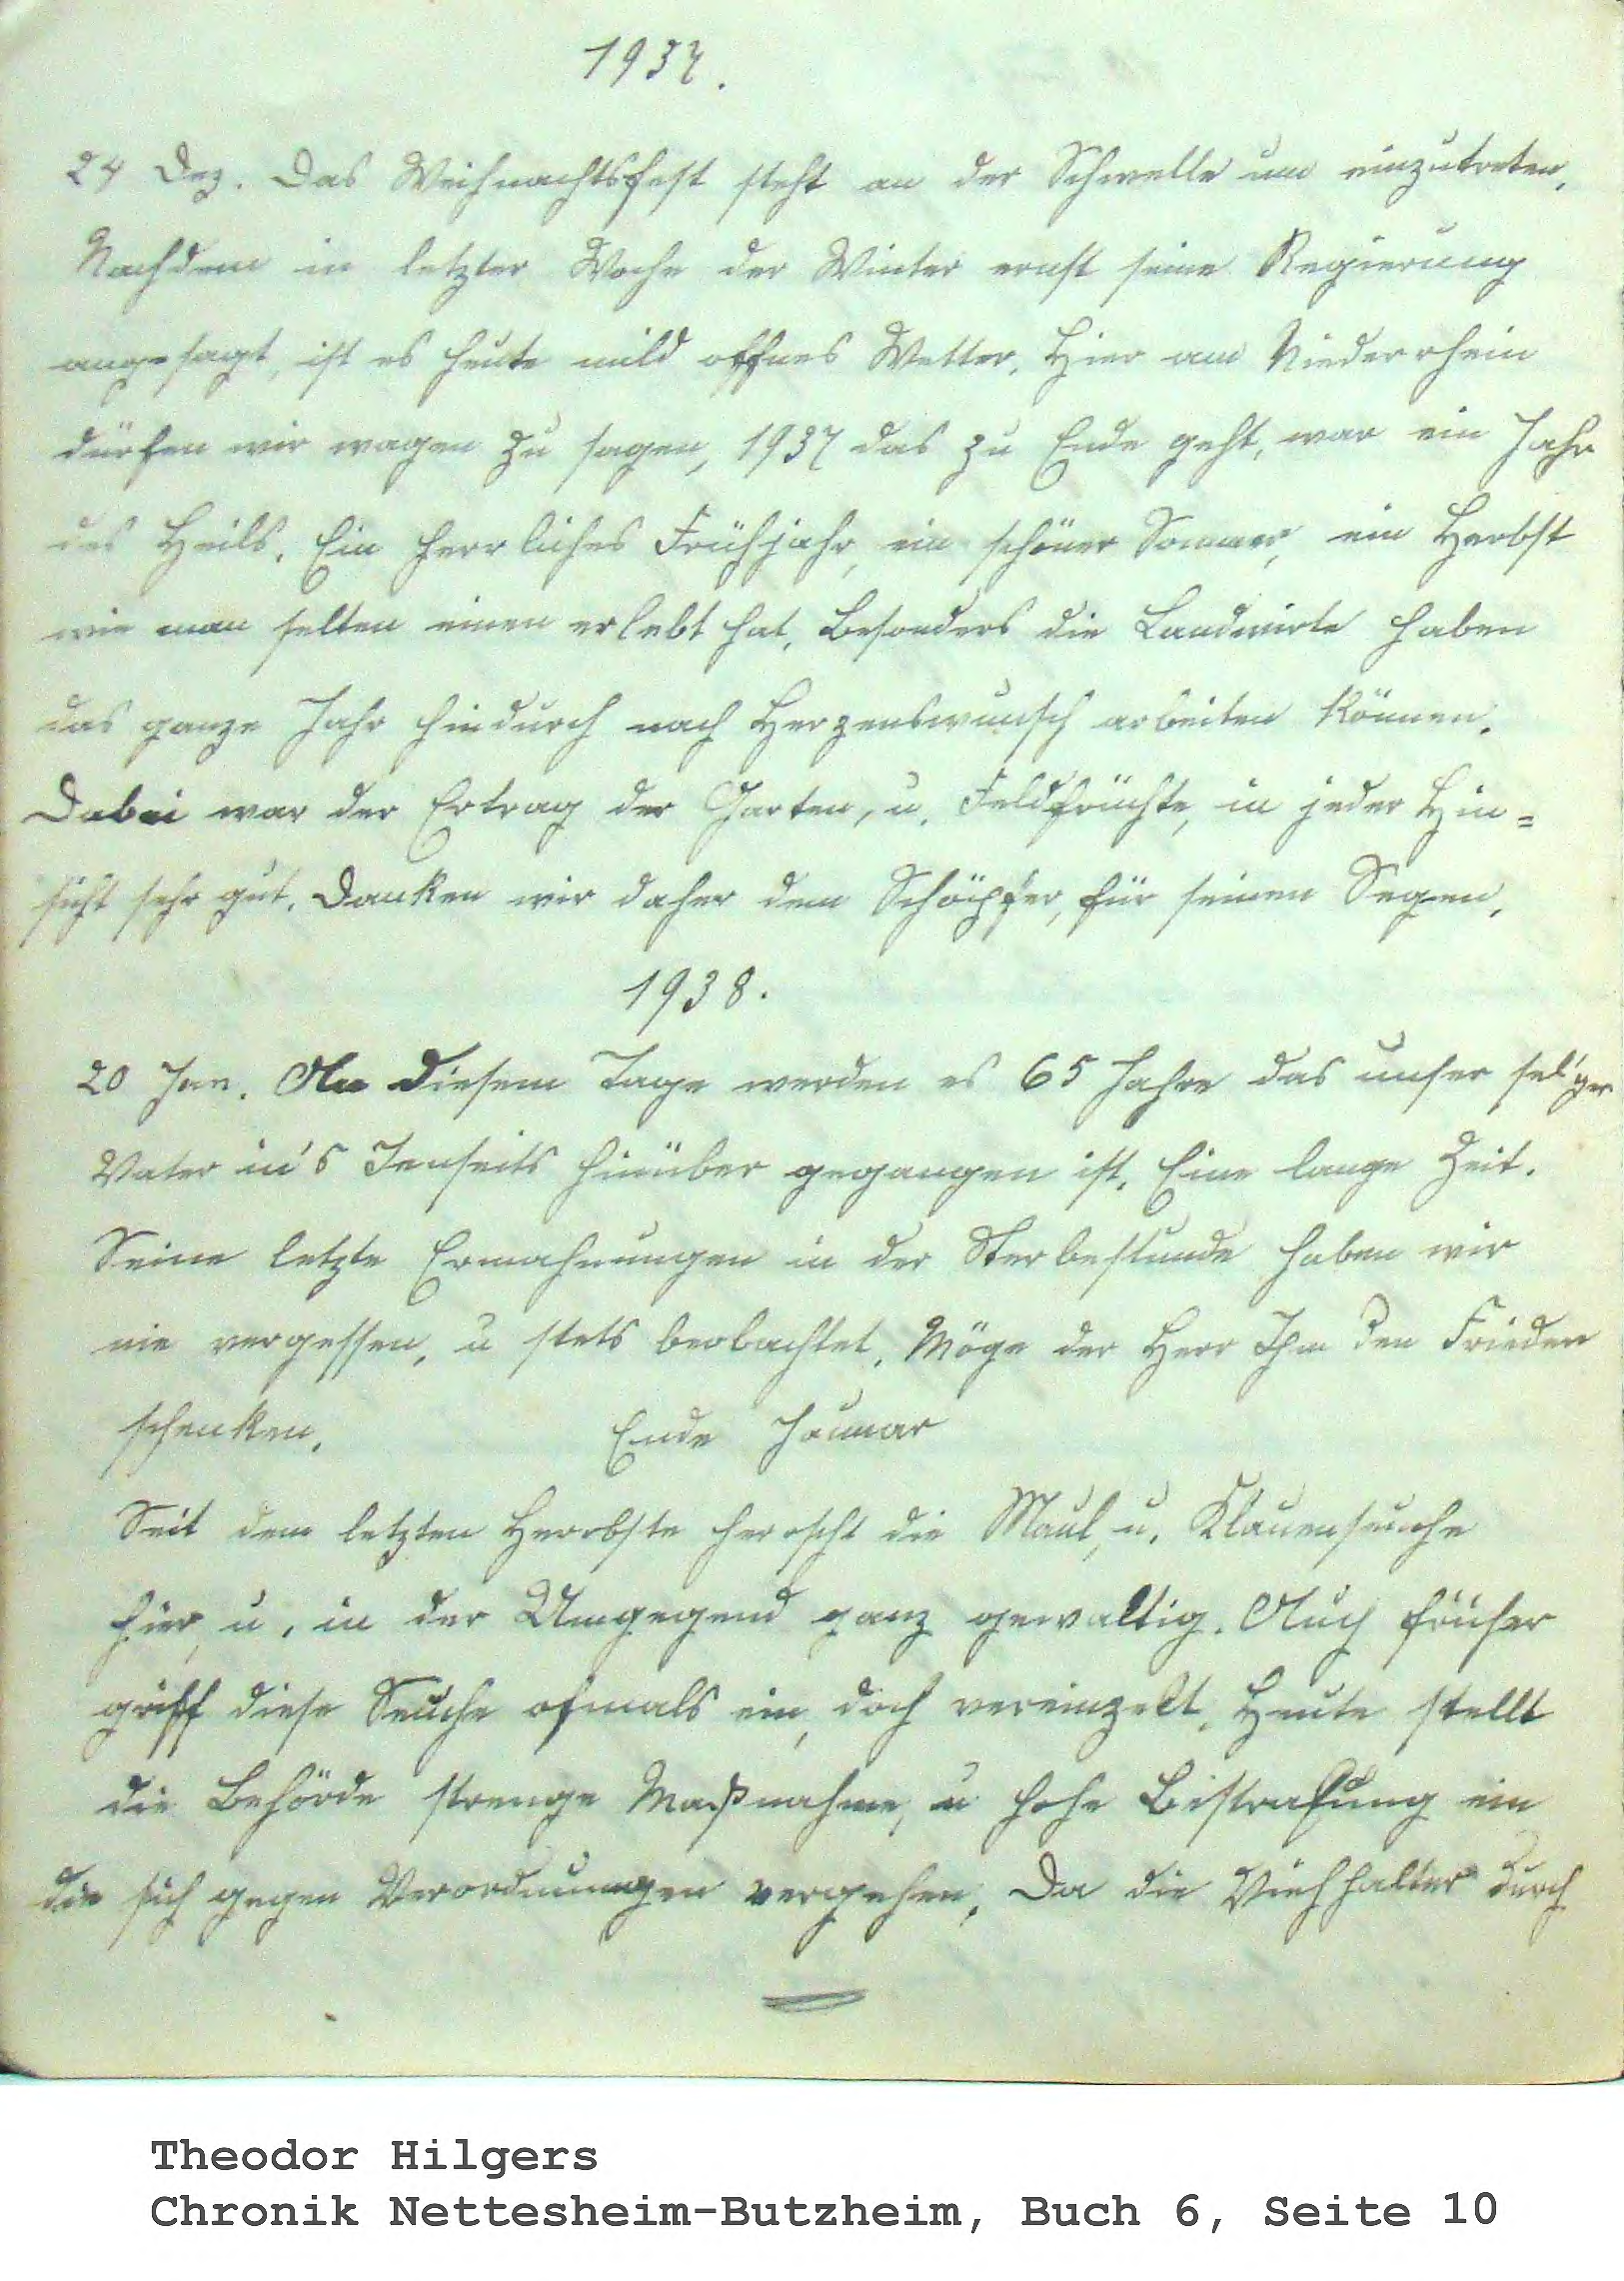 1937.
24 Dez. Das Weihnachtsfest steht an der Schwelle um einzutreten,
Nachdem in letzter Woche der Winter ernst seine Regierung
angesagt, ist es heute mild offnes Wetter, Hier am Niederrhein
dürfen wir wagen zu sagen, 1937 das zu Ende geht, war ein Jahr
des Heils. Ein herrliches Frühjahr, ein schöner Sommer, ein Herbst
wie man selten einen erlebt hat, Besonders die Landwirte haben
das ganze Jahr hindurch nach Herzenswunsch arbeiten können.
Dabei war der Ertrag der Garten, u. Feldfrüchte, in jeder Hin=
sicht sehr gut. Danken wir daher dem Schöpfer, für seinen Segen,
1938.
20 Jan. An diesem Tage werden es 65 Jahre das unser sel'ger
Vater in's Jenseits hinüber gegangen ist. Eine lange Zeit.
Seine letzte Ermahnungen in der Sterbestunde haben wir
nie vergessen, u stets beobachtet. Möge der Herr Ihm den Frieden
schenken. Ende Januar
Seit dem letzten Herbste herrscht die Maul, u. Klauenseuche
hier, u. in der Umgegend ganz gewaltig. Auch früher
griff diese Seuche ofmals ein, doch vereinzelt. Heute stellt
die Behörde strenge Maßnahme, u hohe Bestrafung ein
die sich gegen Verordnungen vergehen, Da die Viehhalter durch
Theodor Hilgers
Chronik Nettesheim-Butzheim, Buch 6, Seite 10